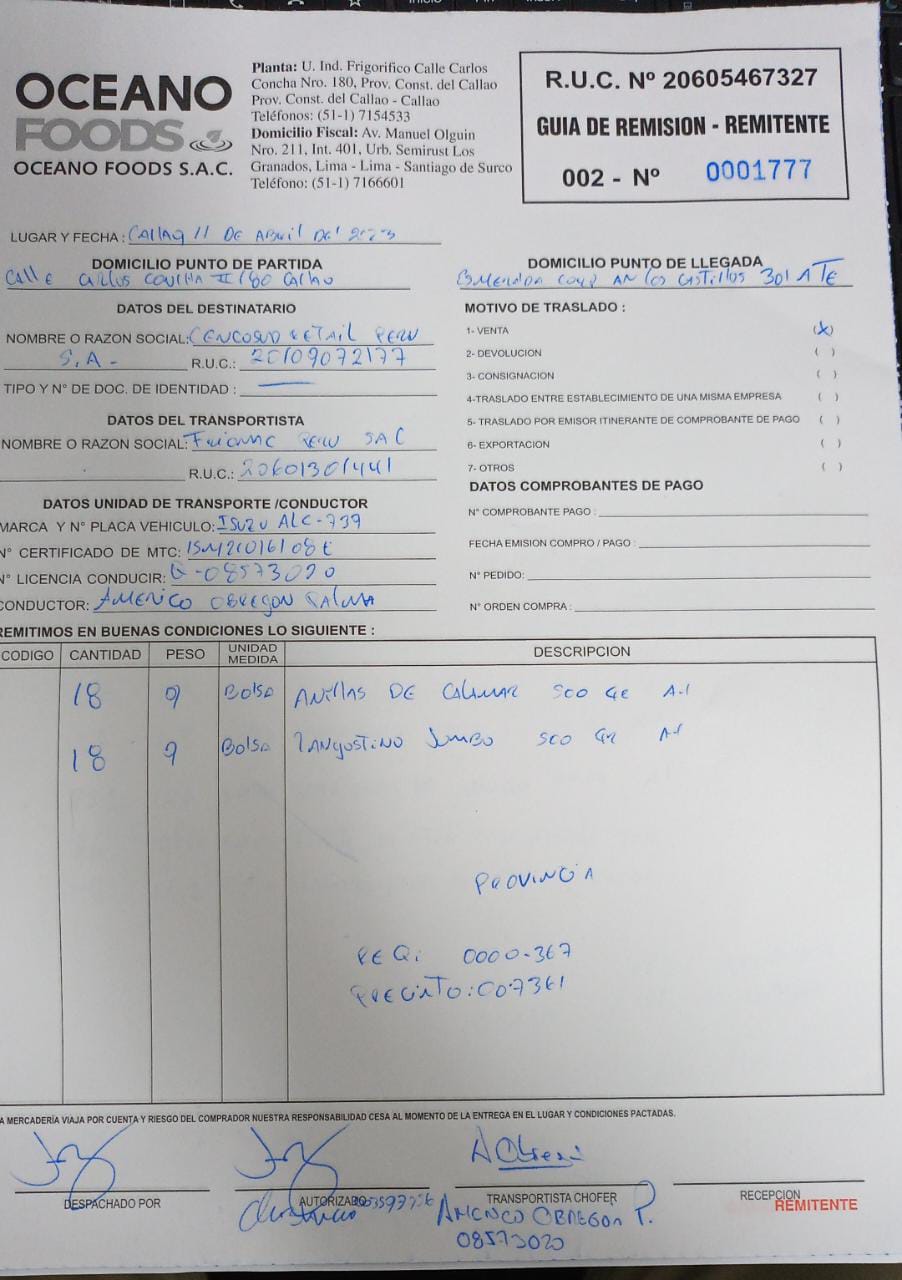 OCEANO
FOODS
OCEANO FOODS S.A.C.
Planta: U. Ind. Frigorifico Calle Carlos
Concha Nro. 180, Prov. Const. del Callao
Prov. Const. del Callao - Callao
Teléfonos: (51-1) 7154533
Domicilio Fiscal: Av. Manuel Olguin
Nro. 211, Int. 401, Urb. Semirust Los
Granados, Lima - Lima - Santiago de Surco
Teléfono: (51-1) 7166601
R.U.C. Nº 20605467327
GUIA DE REMISION - REMITENTE
002 - Nº 0001777
LUGAR Y FECHA : Callao 11 DE ABRIL DEL 2023
DOMICILIO PUNTO DE PARTIDA
Calle Carlos Concha 180 Callao
DOMICILIO PUNTO DE LLEGADA
Los Castillos 301 ATE
DATOS DEL DESTINATARIO
NOMBRE O RAZON SOCIAL: CENCOSUD RETAIL PERU
S.A. R.U.C.: 20109072177
TIPO Y N° DE DOC. DE IDENTIDAD :
DATOS DEL TRANSPORTISTA
NOMBRE O RAZON SOCIAL: PERU SAC
R.U.C.: 20601301441
DATOS UNIDAD DE TRANSPORTE /CONDUCTOR
MARCA Y N° PLACA VEHICULO: ISUZU ALC-739
N° CERTIFICADO DE MTC:
N° LICENCIA CONDUCIR: Q-08573020
CONDUCTOR: AMERICO OBREGON PALMA
MOTIVO DE TRASLADO :
1- VENTA (X)
2- DEVOLUCION ( )
3- CONSIGNACION ( )
4-TRASLADO ENTRE ESTABLECIMIENTO DE UNA MISMA EMPRESA ( )
5- TRASLADO POR EMISOR ITINERANTE DE COMPROBANTE DE PAGO ( )
6- EXPORTACION ( )
7- OTROS ( )
DATOS COMPROBANTES DE PAGO
N° COMPROBANTE PAGO :
FECHA EMISION COMPRO / PAGO :
N° PEDIDO:
N° ORDEN COMPRA :
REMITIMOS EN BUENAS CONDICIONES LO SIGUIENTE :
CODIGO CANTIDAD PESO UNIDAD MEDIDA DESCRIPCION
18 9 Bolsa ANILLAS DE CALAMAR 500 GR A-1
18 9 Bolsa LANGOSTINO JUMBO 500 GR A-1
PROVINCIA
PEQ: 0000-367
PRECINTO: 007361
A MERCADERÍA VIAJA POR CUENTA Y RIESGO DEL COMPRADOR NUESTRA RESPONSABILIDAD CESA AL MOMENTO DE LA ENTREGA EN EL LUGAR Y CONDICIONES PACTADAS.
DESPACHADO POR
AUTORIZADO
TRANSPORTISTA CHOFER
RECEPCION
REMITENTE
AMERICO OBREGON P.
08573020